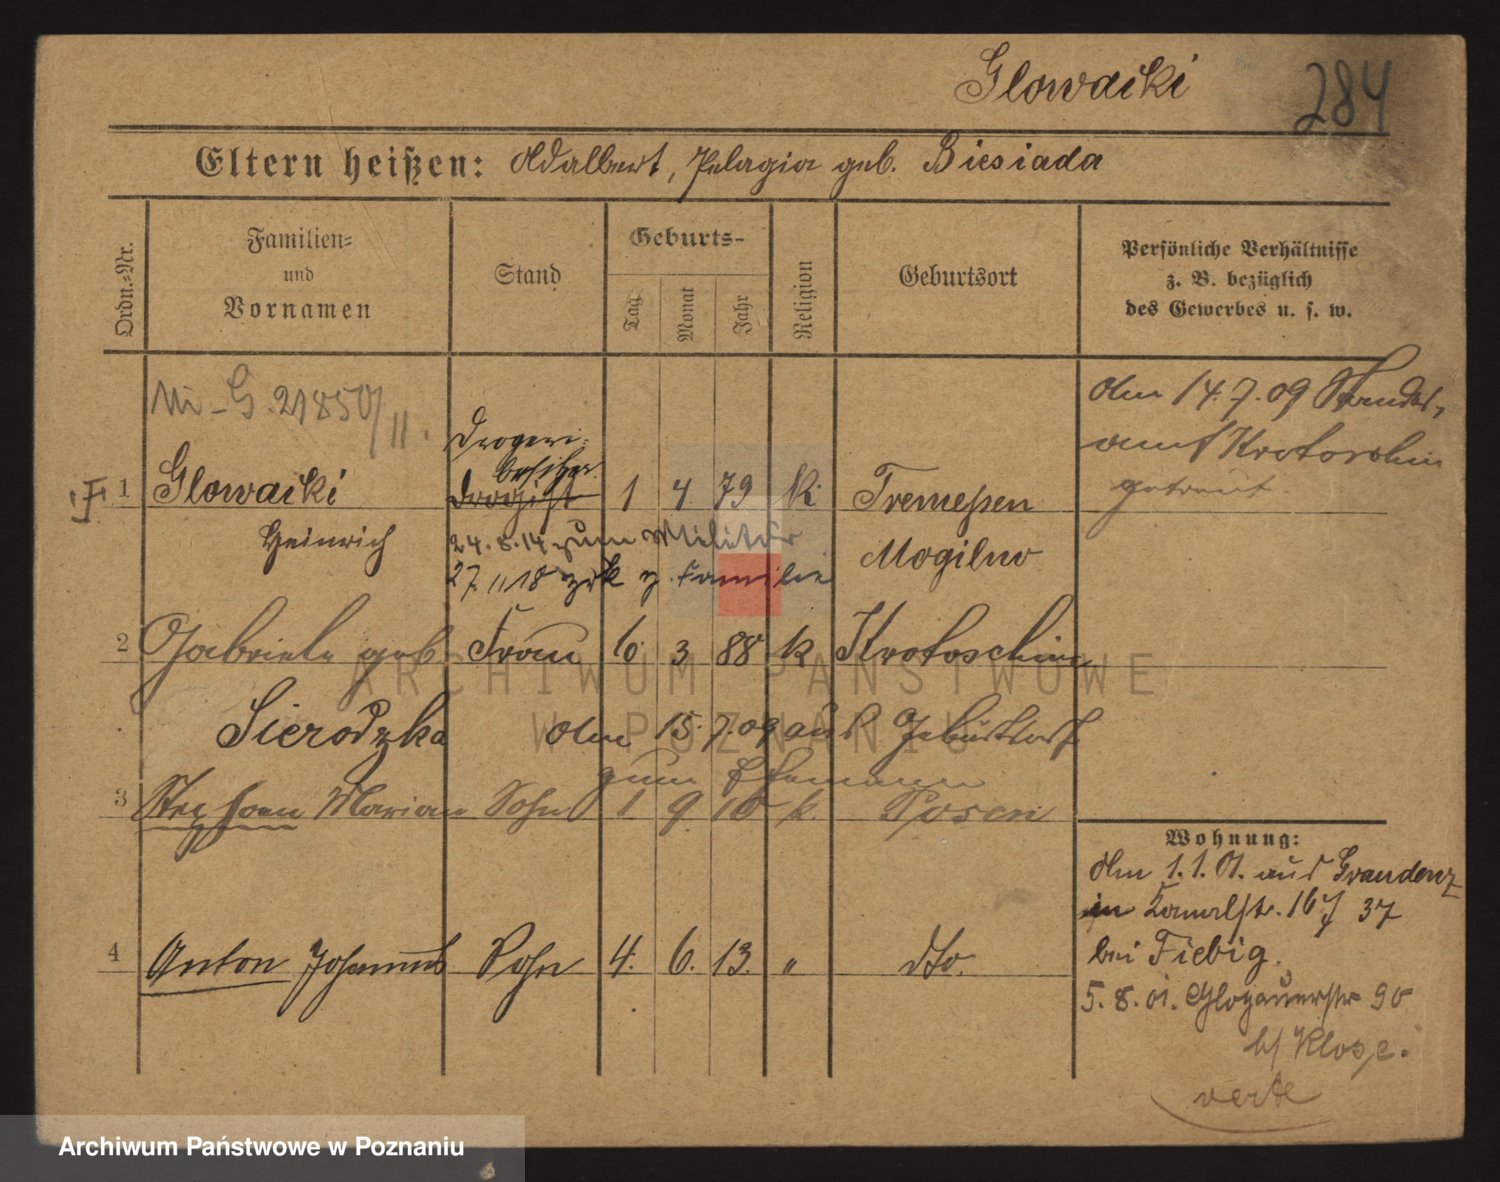 Glowacki
284
Eltern heißen: Adalbert, Pelagia geb. Biesiada
Ordn.-Nr.
Familien-
und
Vornamen
Stand
Geburts-
Tag
Monat
Jahr
Religion
Geburtsort
Persönliche Verhältnisse
z. B. bezüglich
des Gewerbes u. s. w.
G. 21850/II.
Am 14.7.09 Standes-
amt Krotoschin
getraut
Drogeri-
besitzer
1 Glowacki Drogist 1 4 79 k. Tremessen
Heinrich Mogilno
24.8.14 zum Militär
27.11.18 zrk z. Familie
2 Gabriele geb. Frau 6. 3 88 k Krotoschin
Sierodzka Am 15.7.09 aus Geburtsort
zum Ehemann
3 Stephan Marian Sohn 1 9 10 k. Posen
Wohnung:
Am 1.1.01. aus Graudenz
in Kanalstr. 16/ 37
bei Fiebig.
4 Anton Johannes Sohn 4. 6. 13. " dto.
5.8.01. Glogauerstr 90
b/ Klose.
verte
ARCHIWUM PAŃSTWOWE
W POZNANIU
Archiwum Państwowe w Poznaniu